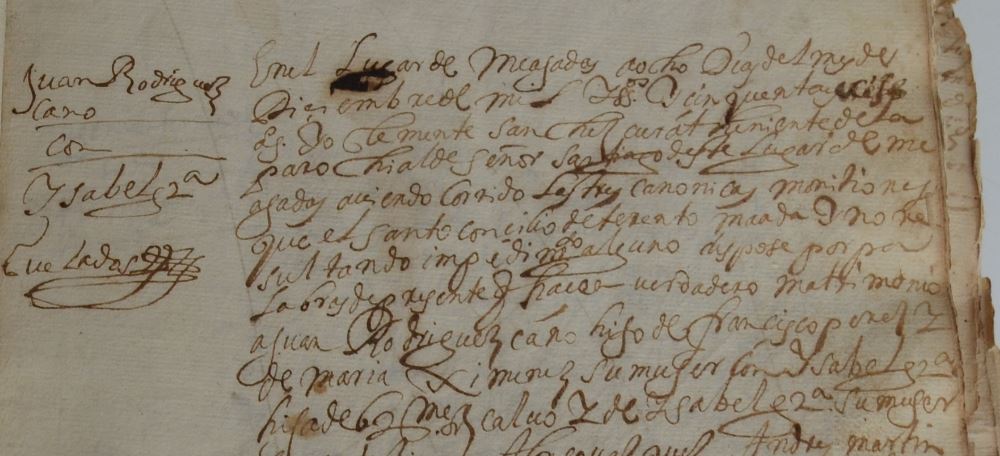 Juan Rodriguez
cano
con
Ysabel gª
Veladas
En el Lugar de Meajadas a ocho dias del mes de
Diciembre de mil y seisº y cinquenta y
as. yo clemente sanchez cura theniente de la
parrochial de señor santiago deste Lugar de me
ajadas aviendo corrido Las tres canonicas monitiones
que el santo concilio de trento manda y no re
sultando impedimtº alguno despose por pa
labras de presente q hacen verdadero matrimonio
a Juan Rodriguez cano hijo de francisco perez y
de maria Ximenez su muger con Ysabel gª
hija de mrn calvo y de Ysabel gª su muger
Andres martin